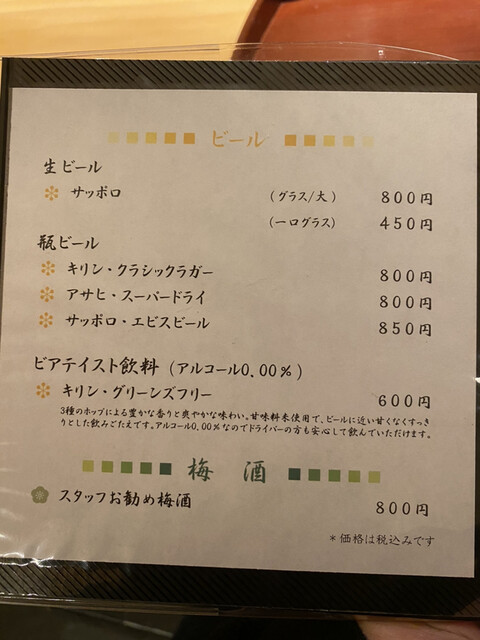 ビール
生ビール
サッポロ (グラス/大) 800円
(一口グラス) 450円
瓶ビール
キリン・クラシックラガー 800円
アサヒ・スーパードライ 800円
サッポロ・エビスビール 850円
ビアテイスト飲料 (アルコール0.00%)
キリン・グリーンズフリー 600円
3種のホップによる豊かな香りと爽やかな味わい。甘味料未使用で、ビールに近い甘くなくすっき
りとした飲みごたえです。アルコール0.00%なのでドライバーの方も安心して飲んでいただけます。
梅酒
スタッフお勧め梅酒 800円
*価格は税込みです